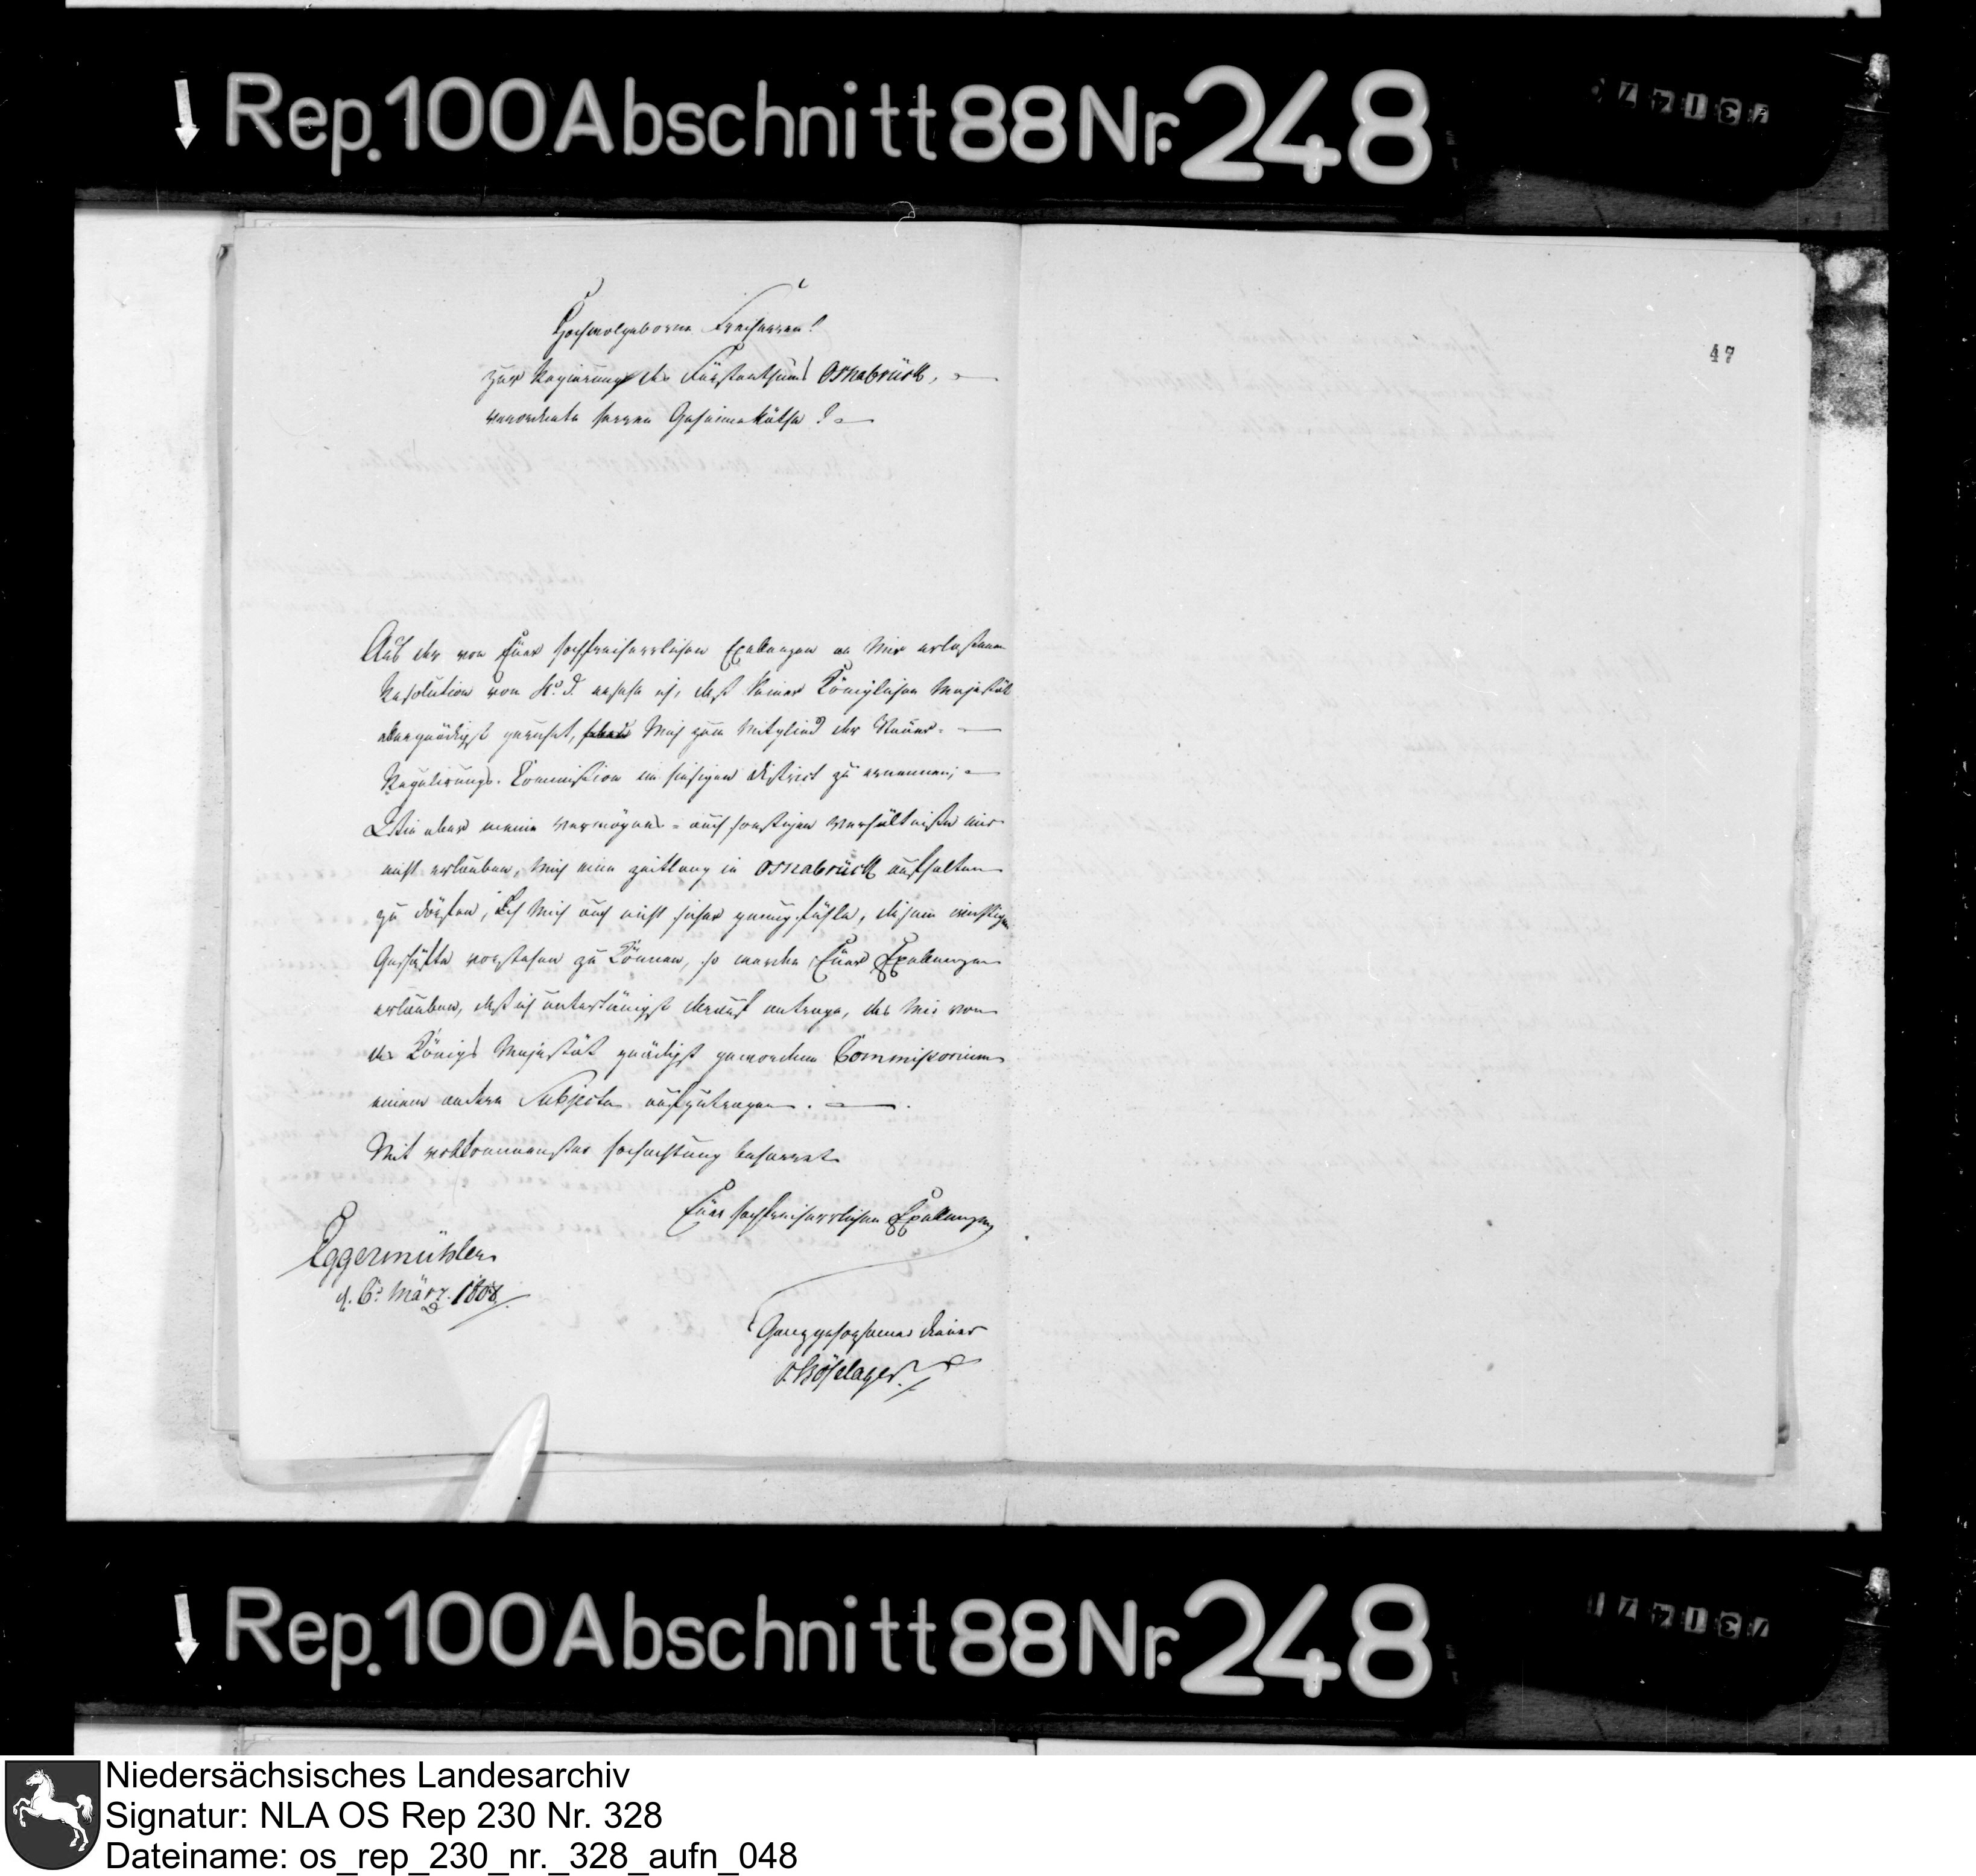 Rep. 100 Abschnitt 88 Nr. 248
47
Hochwolgeborne Freiherren!
zur Regierung des Fürstenthums Osnabrück,
verordnete herren Geheimeräthe!
Aus der von Euer hochfreiherrlichen Excellenzen an Mir erlaßenen
Resolution von ersehe ich, daß Seiner Königlichen Majestät
allergnädigst geruhet, Mich zum Mitglied der Steuer-
Regulirungs-Commission im hiesigen District zu ernennen;
Da aber meine Vermögens- auch sonstigen Verhältniße mir
nicht erlauben, Mich eine zeitlang in Osnabrück aufhalten
zu dörfen, Ich Mich auch nicht sicher genug fühle, diesem wichtigen
Geschäfte vorstehen zu Können, so werden Euer Excellenzen
erlauben, daß ich unterthänigst darauf antrage, das Mir von
des Königs Majestät gnädigst gewordene Commissorium
einem andern Subjecte aufzutragen.
Mit vollkommenster hochachtung beharret
Euer hochfreiherrlichen Excellenzen
Eggermühlen
d. 6t März. 1808.
Ganz gehorsamer diener
v. Böselager.
Rep. 100 Abschnitt 88 Nr. 248
Niedersächsisches Landesarchiv
Signatur: NLA OS Rep 230 Nr. 328
Dateiname: os_rep_230_nr._328_aufn_048